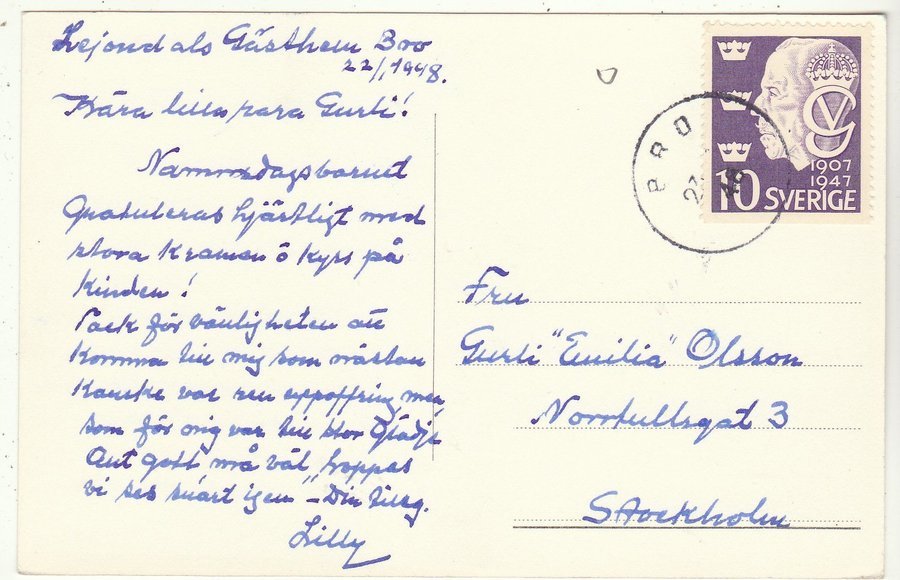 Lejondals Gästhem Bro
22/1 1948.
Kära lilla rara Gurli!
Namnsdagsbarnet
Gratuleras hjärtligt med
stora kramen ö kyss på
kinden!
Tack för vänligheten att
komma till mig som nästan
kanske var ren uppoffring men
som för mig var till stor Glädje
Allt gott må väl, hoppas
vi ses snart igen – Din tillg.
Lilly
BRO
1907
1947
10 SVERIGE
Fru
Gurli "Emilia" Olsson
Norrtullsgat 3
Stockholm